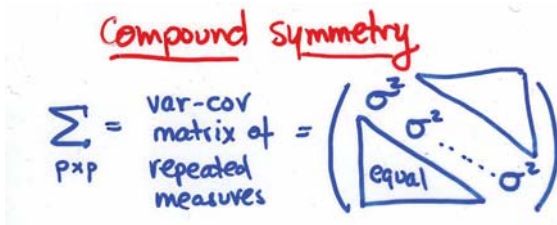 Compound Symmetry
Σ = var-cov matrix of repeated measures = ( σ² σ² ..... σ² equal )
p×p